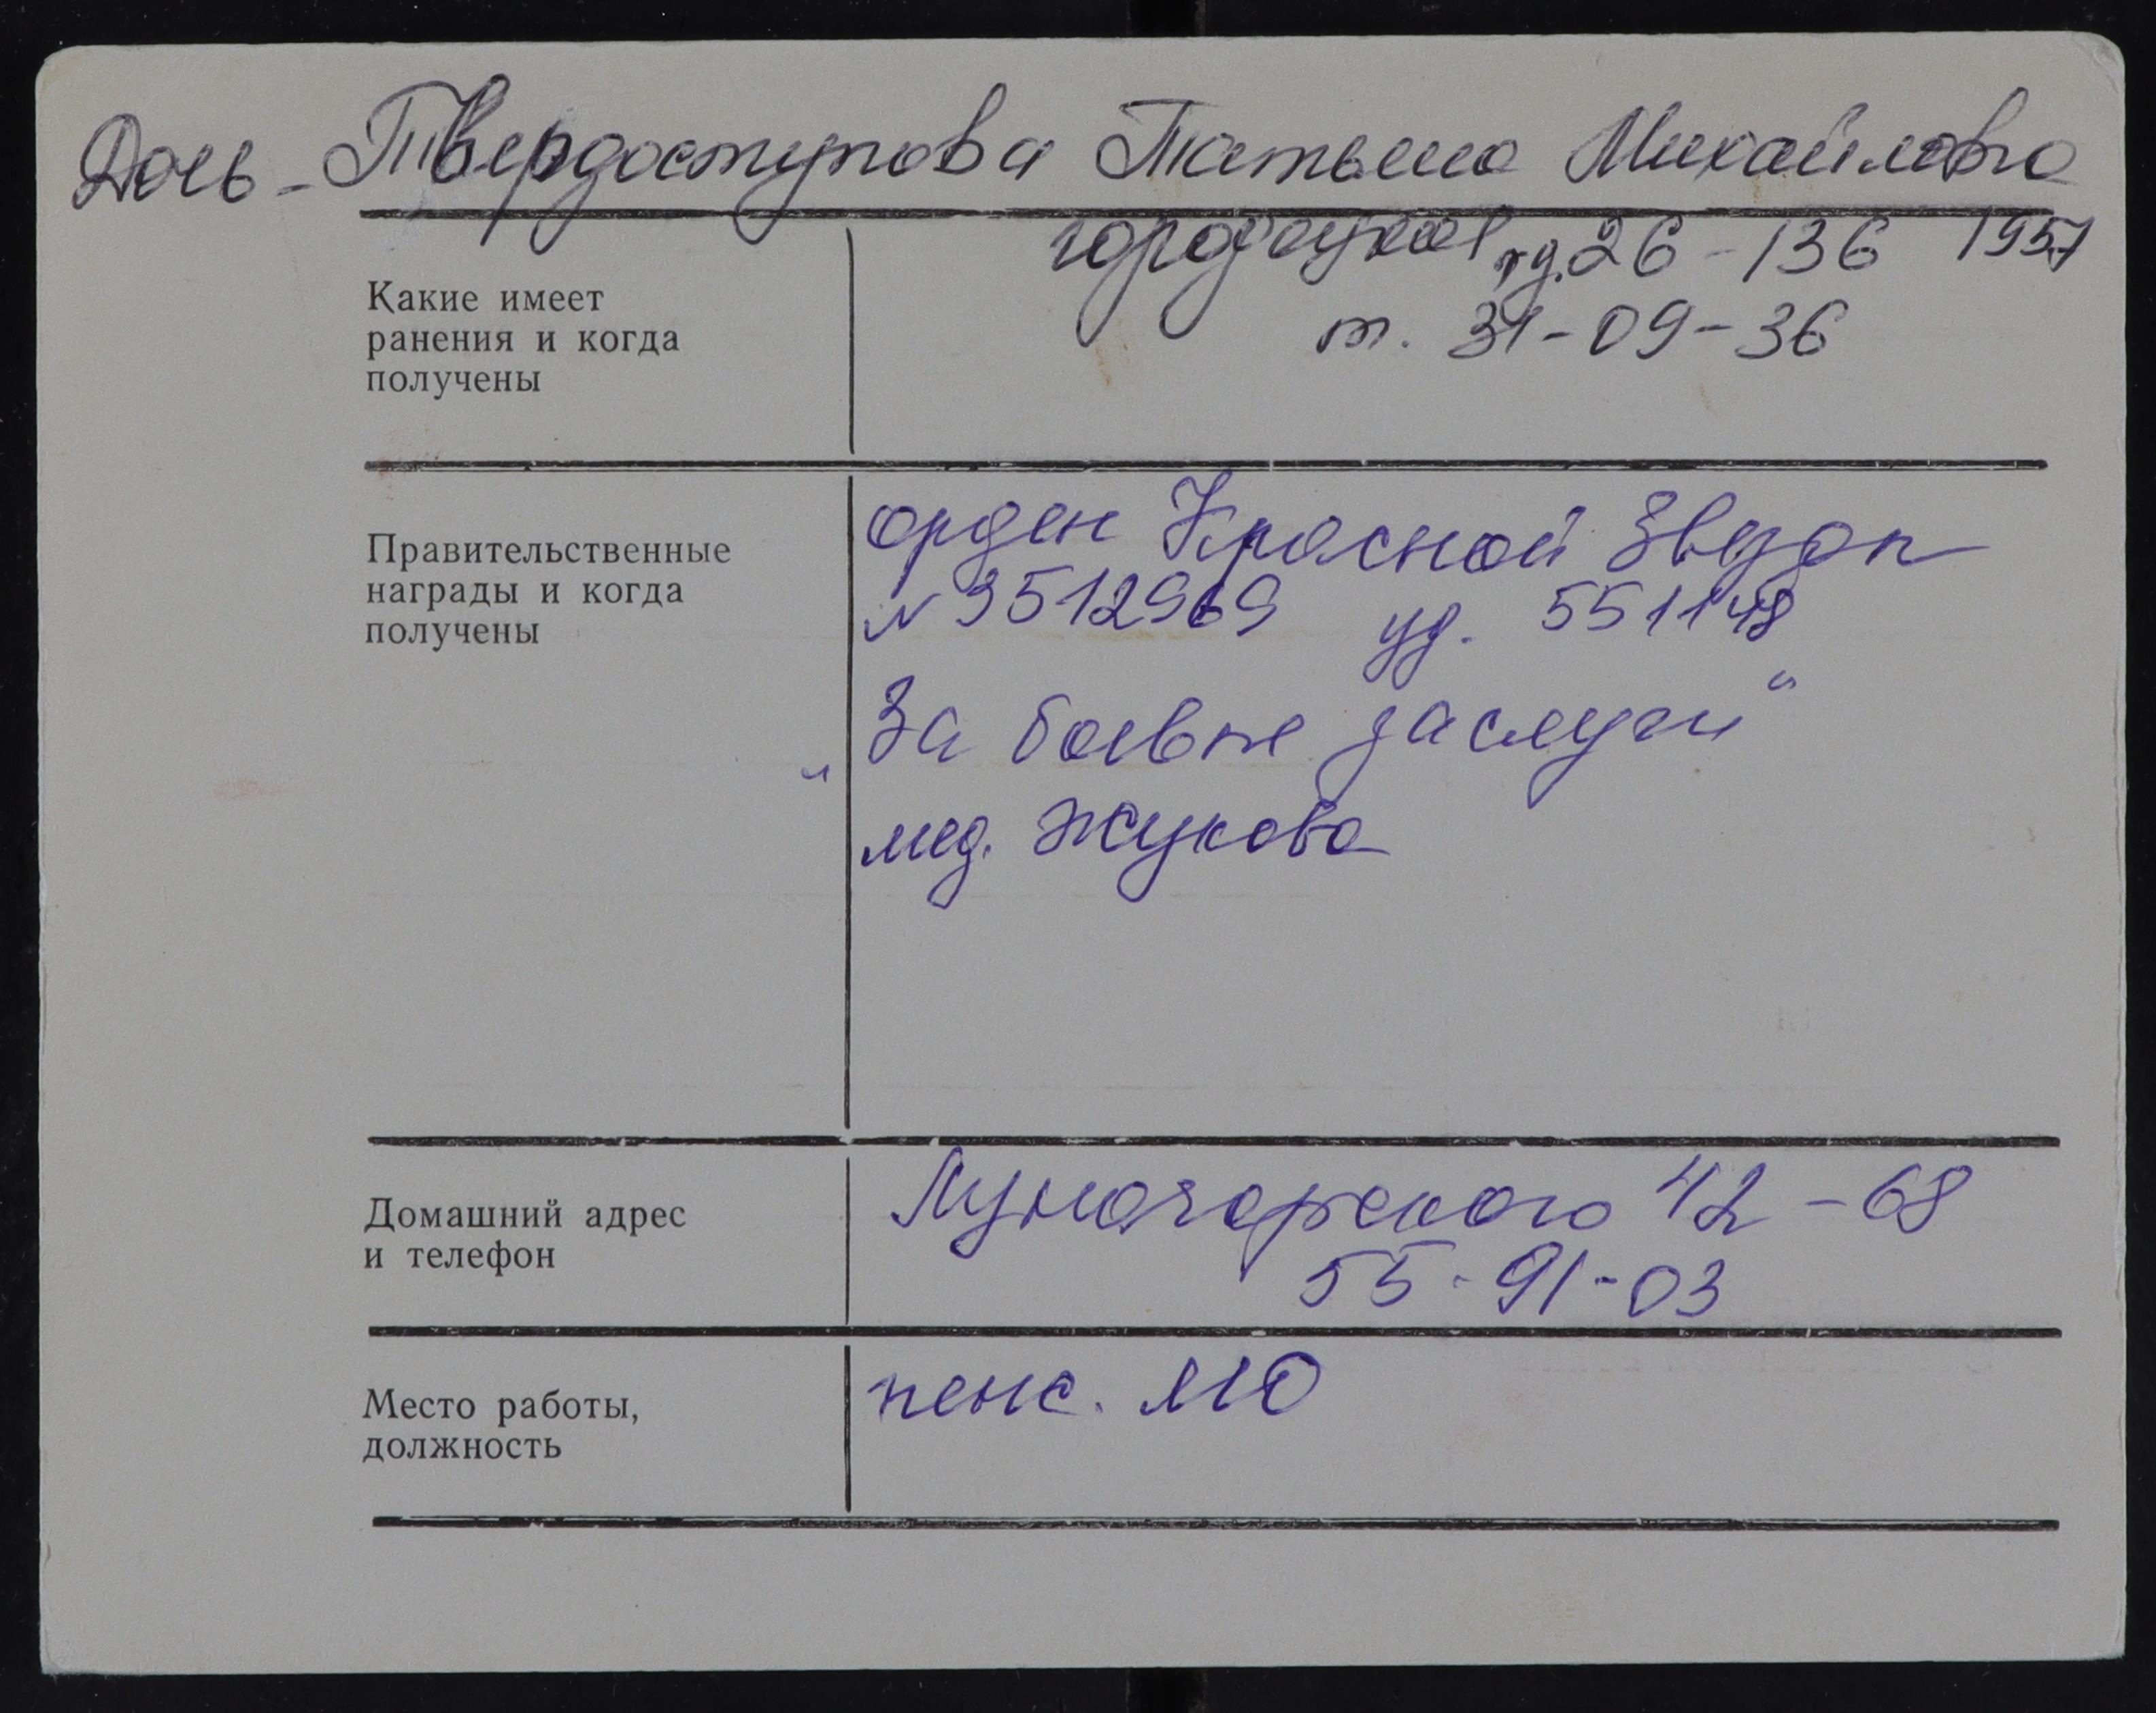 Дочь - Твердоступова Татьяна Михайловна
д. 26 - 136 1957
т. 31-09-36
Какие имеет
ранения и когда
получены
Правительственные
награды и когда
получены
орден Красной Звезды
№ 3512969 уд. 551148
"За боевые заслуги"
мед. Жукова
Домашний адрес
и телефон
Луначарского 42 - 68
55-91-03
Место работы,
должность
пенс. МО